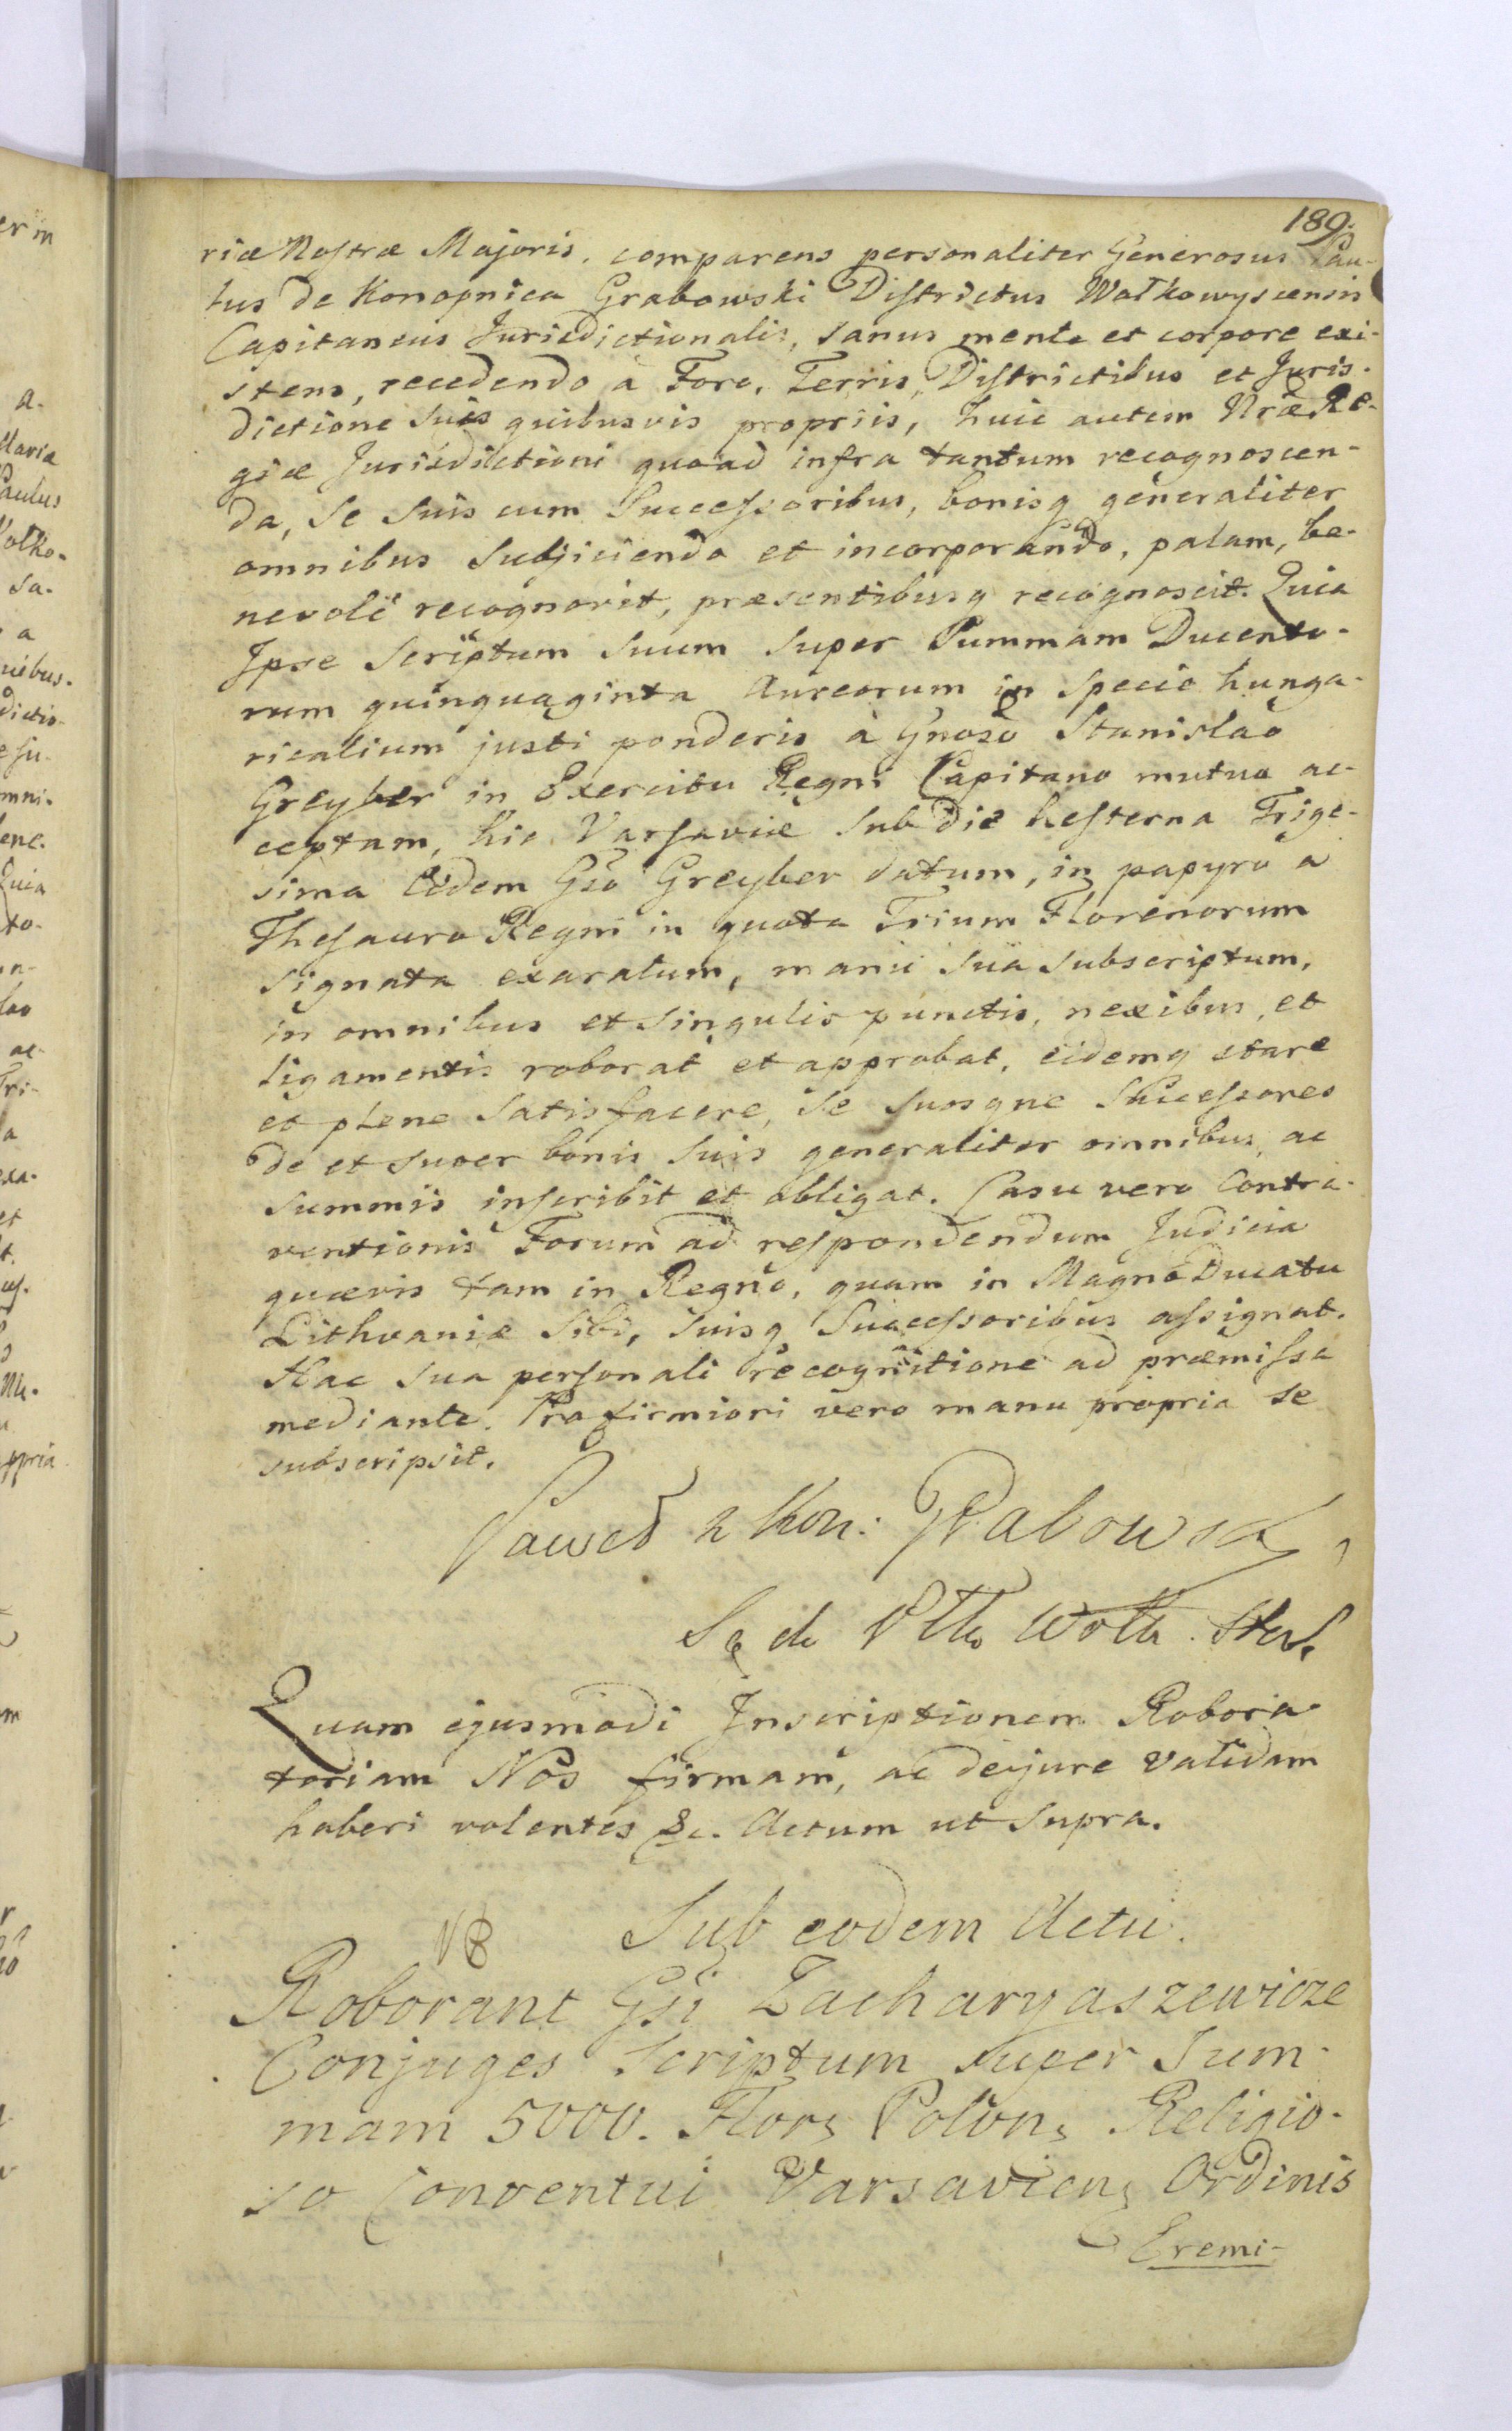 189.
riæ Nostræ Majoris, comparens personaliter Generosus Pau-
lus de Konopnica Grabowski Districtus Wołkowyscensis
Capitaneus Jurisdictionalis, sanus mente et corpore exi-
stens, recedendo à Foro, Terris, Districtibus et Juris-
dictione suis quibusvis propriis, huic autem Nræ Re-
giæ Jurisdictioni quoad infra tantum recognoscen-
da, se suis cum Successoribus, bonisq generaliter
omnibus subjiciendo et incorporando, palam, be-
nevolè recognovit, præsentibusq recognoscit. Quia
Ipse Scriptum suum super Summam Ducento-
rum quinquaginta Aureorum in specie hunga-
ricalium justi ponderis à Gnoso Stanislao
Greyber in Exercitu Regni Capitano mutuo ac-
ceptam, hic Varsaviæ sub die hesterna Trige-
sima eidem Gso Greyber datum, in papyro a
Thesauro Regni in quota Trium Florenorum
signata exaratum, manu sua subscriptum,
in omnibus et singulis punctis, nexibus, et
ligamentis roborat et approbat, eidemq stare
et plene satisfacere, se suosque Successores
de et super bonis suis generaliter omnibus, ac
summis inscribit et obligat. Casu vero Contra-
ventionis Forum ad respondendum Judicia
quævis tam in Regno, quam in Magno Ducatu
Lithvaniæ sibi, suisq Successoribus assignat.
Hac sua personali recognitione ad præmissa
mediante. Pro firmiori vero manu propria se
subscripsit.
Paweł z Kon: Grabowski
Quam ejusmodi Inscriptionem Robora-
toriam Nos firmam, ac de jure validam
haberi volentes &c. Actum ut supra.
NB Sub eodem Actu.
Roborant Gsi Zacharyaszewicze
Conjuges Scriptum super Sum-
mam 5000. Flor; Polon; Religio-
so Conventui Varsavien; Ordinis
Eremi-